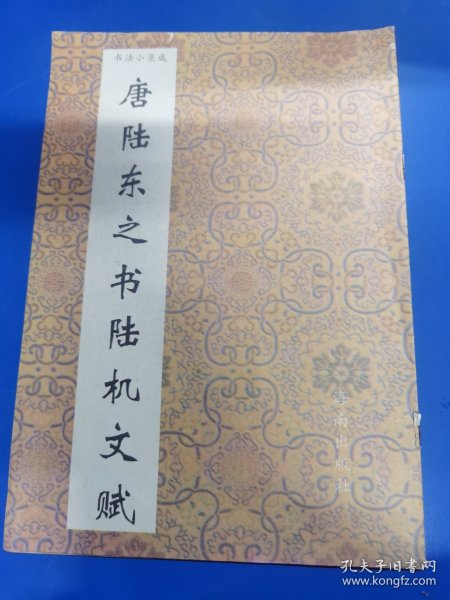 书法小集成
唐陆东之书陆机文赋
海南出版社
孔夫子旧书网
www.kongfz.com